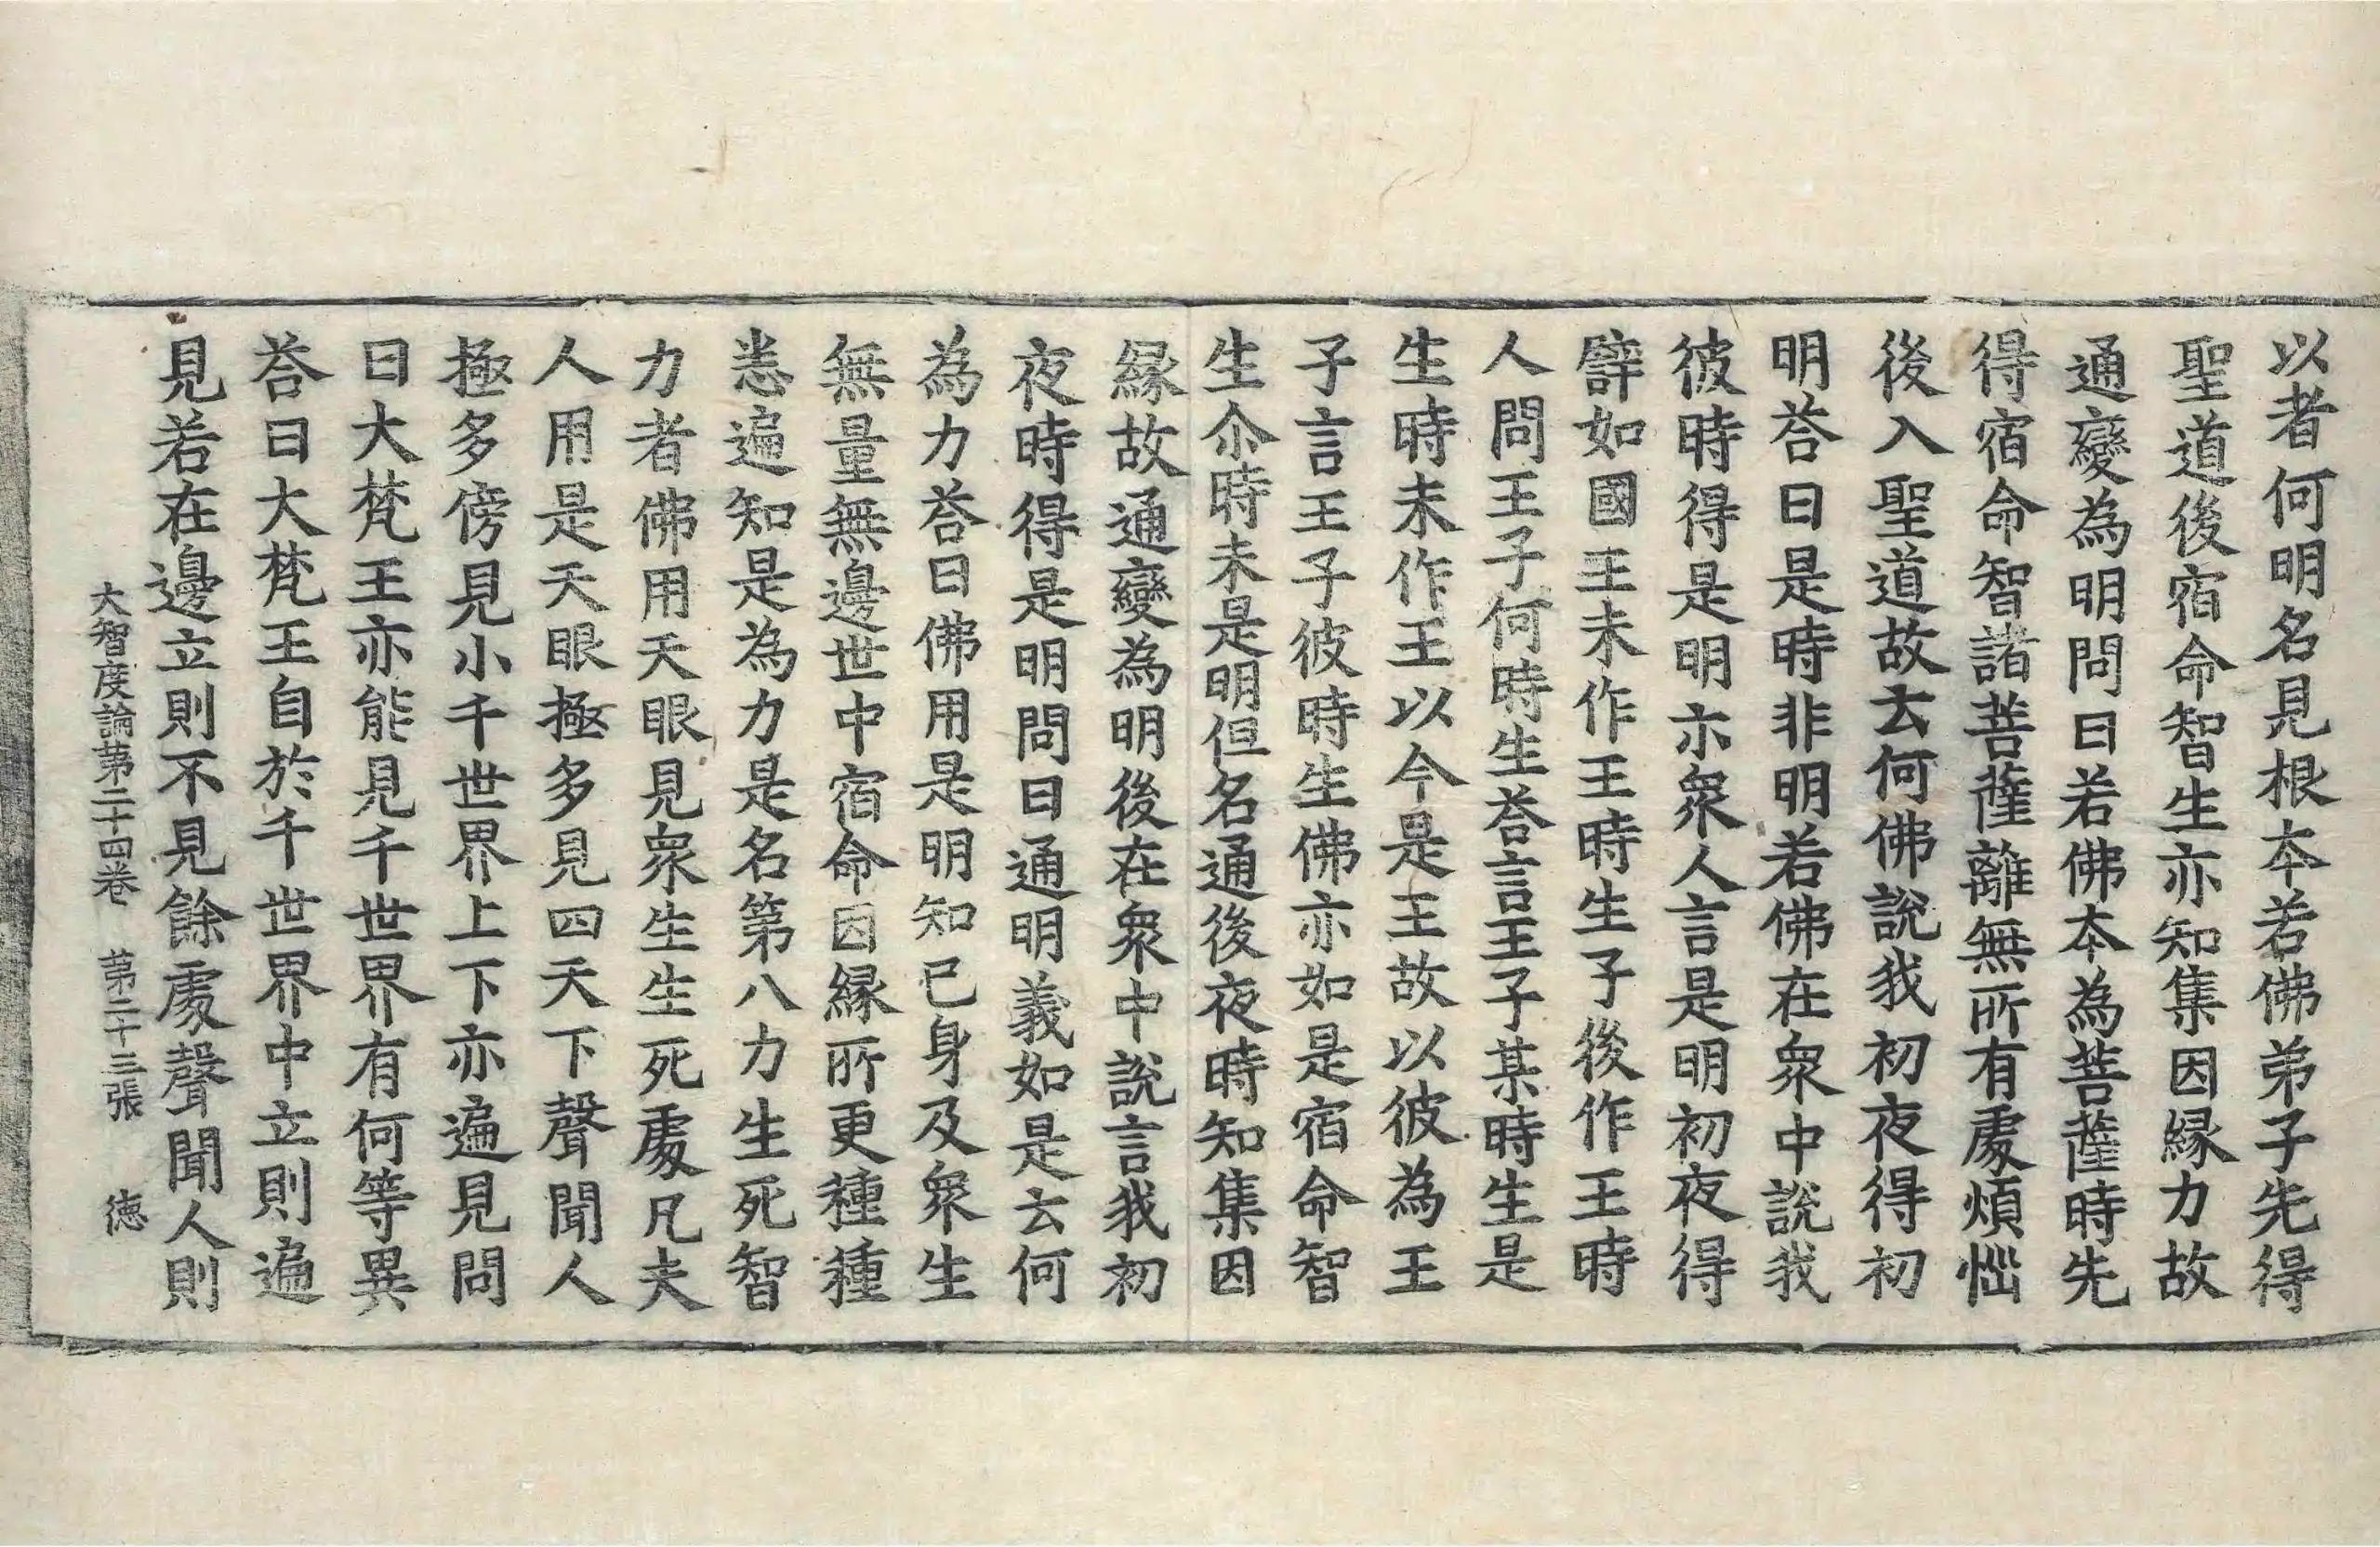 以者何明名見根本若佛弟子先得
聖道後宿命智生亦知集因緣力故
通變為明問曰若佛本為菩薩時先
得宿命智諸菩薩離無所有處煩惱
後入聖道故云何佛說我初夜得初
明荅曰是時非明若佛在衆中說我
彼時得是明示衆人言是明初夜得
譬如國王未作王時生子後作王時
人問王子何時生荅言王子某時生是
生時未作王以今是王故以彼為王
子言王子彼時生佛亦如是宿命智
生尒時未是明但名通後夜時知集因
緣故通變為明後在衆中說言我初
夜時得是明問曰通明義如是云何
為力荅曰佛用是明知已身及衆生
無量無邊世中宿命因緣所更種種
悉遍知是為力是名第八力生死智
力者佛用天眼見衆生生死處凡夫
人用是天眼極多見四天下聲聞人
極多傍見小千世界上下亦遍見問
曰大梵王亦能見千世界有何等異
荅曰大梵王自於千世界中立則遍
見若在邊立則不見餘處聲聞人則
大智度論第二十四卷 第二十三張 德